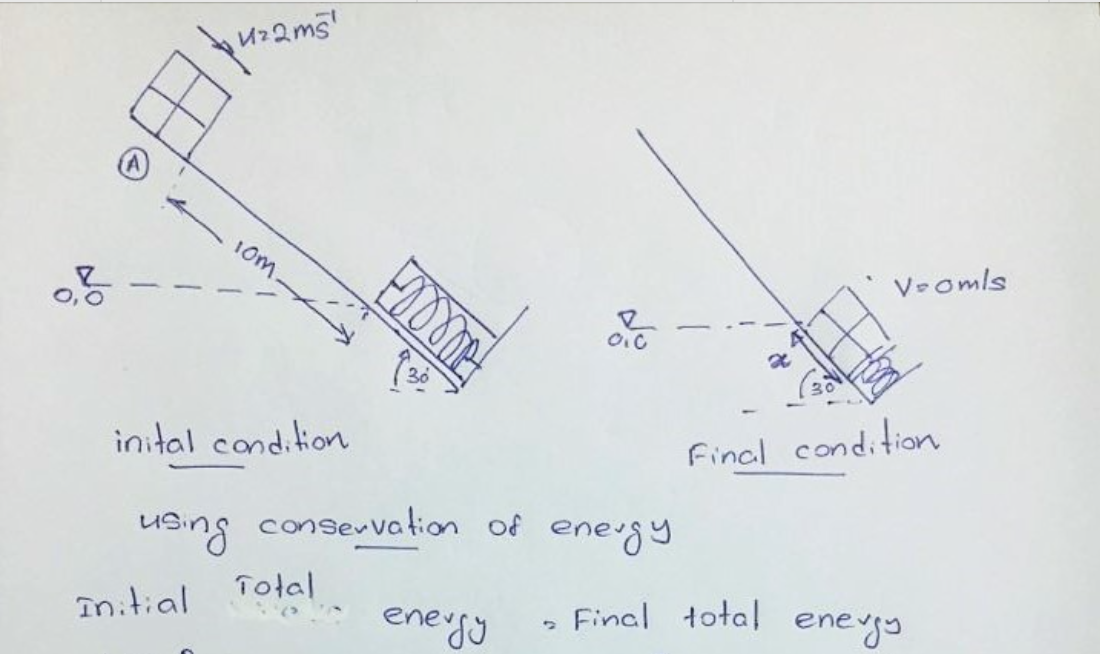 u=2ms⁻¹
A
10m
0,0
30
V=0m/s
0,0
x
30
inital condition
Final condition
using conservation of energy
Initial Total energy = Final total energy